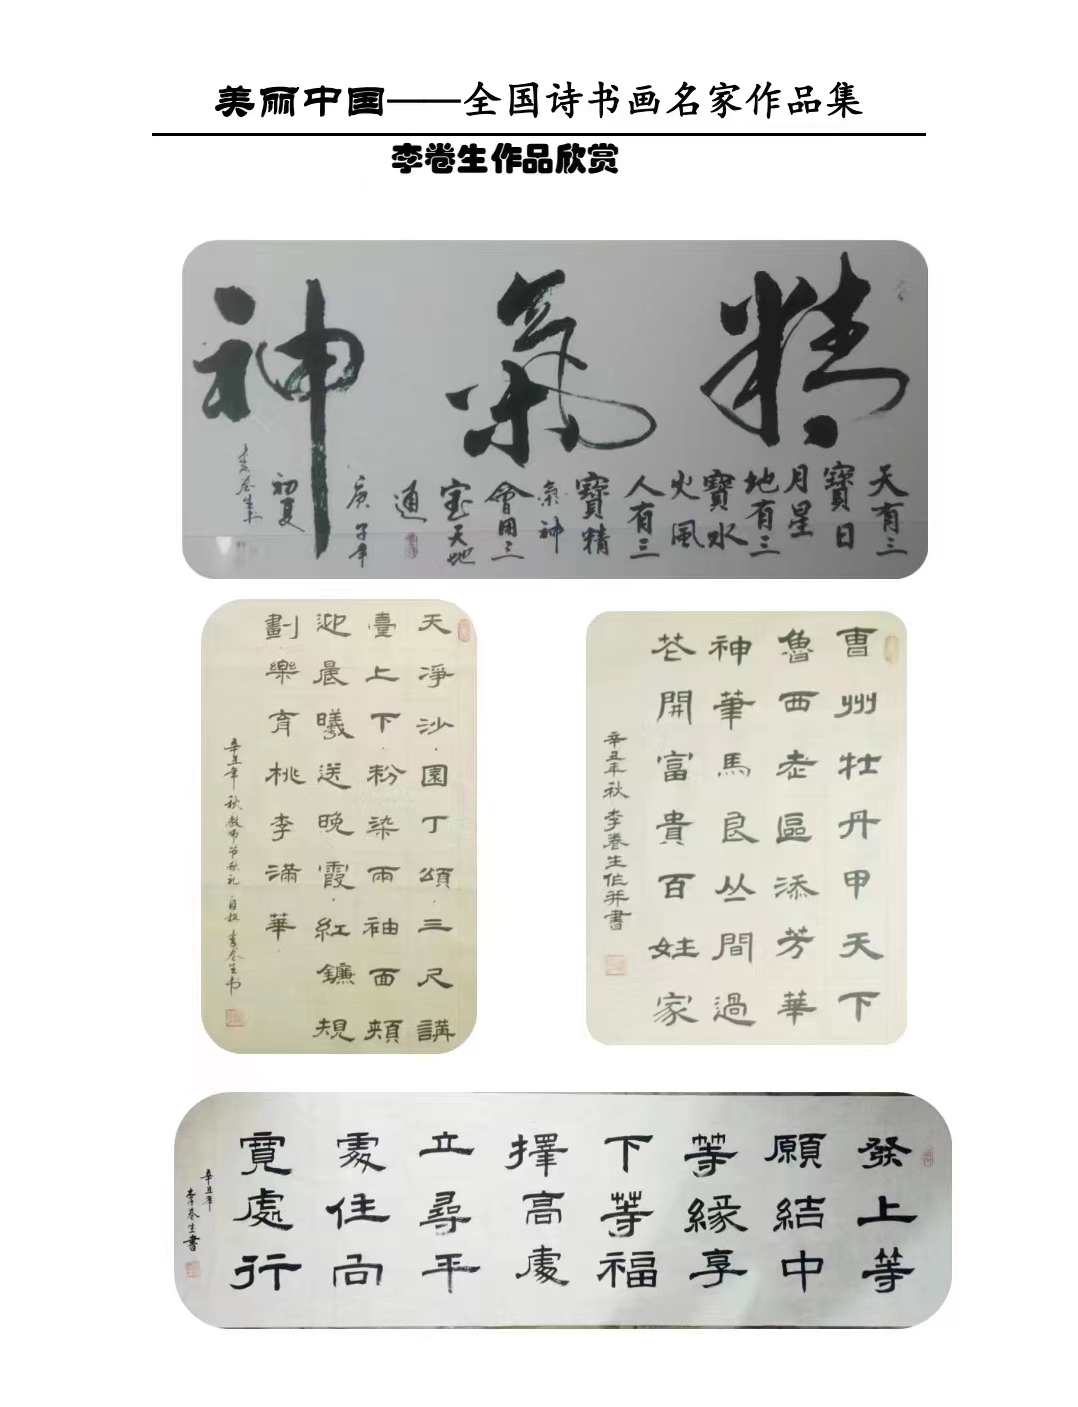 美丽中国——全国诗书画名家作品集
李卷生作品欣赏
精氣神
天有三
寶日
月星
地有三
寶水
火風
人有三
寶精
氣神
會用三
宝天地
通
庚子年
初夏
李卷生书
天淨沙·園丁頌·三尺講
臺上下·粉染兩袖面頰
迎晨曦送晚霞·紅鑣規
劃·樂育桃李滿華·
辛丑年秋教师节献礼自撰李卷生书
曹州牡丹甲天下
魯西老區添芳華
神筆馬良丛間過
花開富貴百姓家
辛丑年秋李卷生作并書
發上等
願結中
等緣享
下等福
擇高處
立尋平
處住向
寬處行
辛丑年
李卷生書